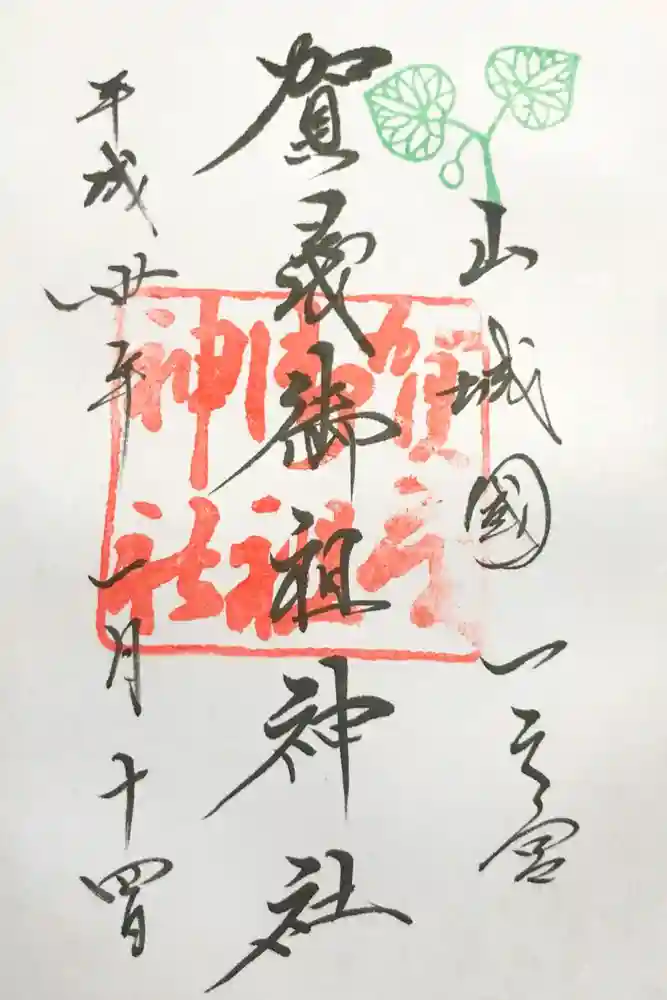 山城國 一之宮
賀茂御祖神社
平成卅年 一月十四日
賀茂御祖神社